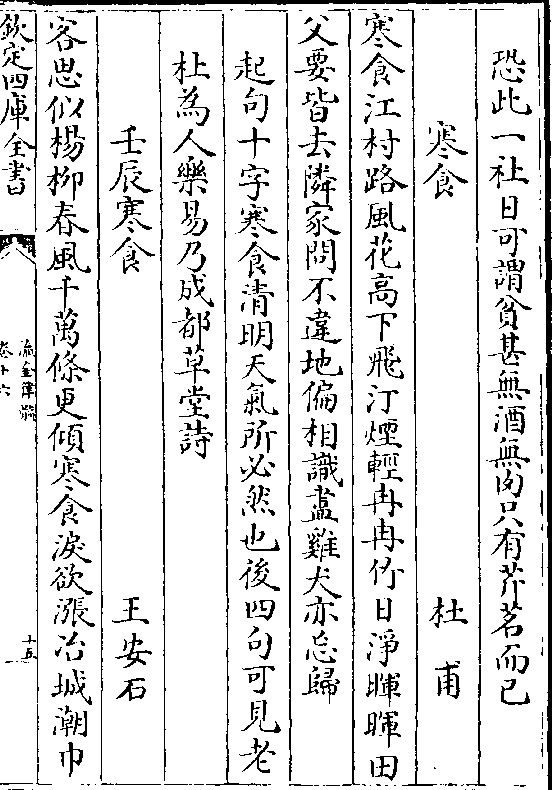 恐此一社日可謂貧甚無酒無肉只有芹茗而已
寒食 杜甫
寒食江村路風花高下飛汀煙輕冉冉竹日淨暉暉田
父要皆去隣家問不違地偏相識盡雞犬亦忘歸
起句十字寒食清明天氣所必然也後四句可見老
杜為人樂易乃成都草堂詩
壬辰寒食 王安石
客思似楊柳春風千萬條更傾寒食淚欲漲冶城潮巾
欽定四庫全書
卷十六
十五